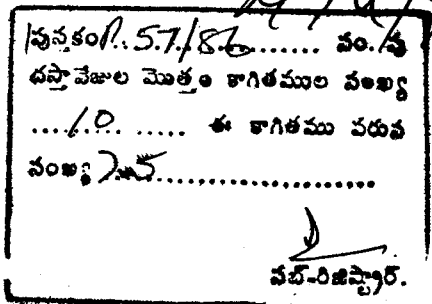 పుస్తకం 57/86 నం./పు
దస్తావేజుల మొత్తం కాగితముల సంఖ్య
10 ఈ కాగితము వరుస
సంఖ్య
సబ్-రిజిస్ట్రార్.